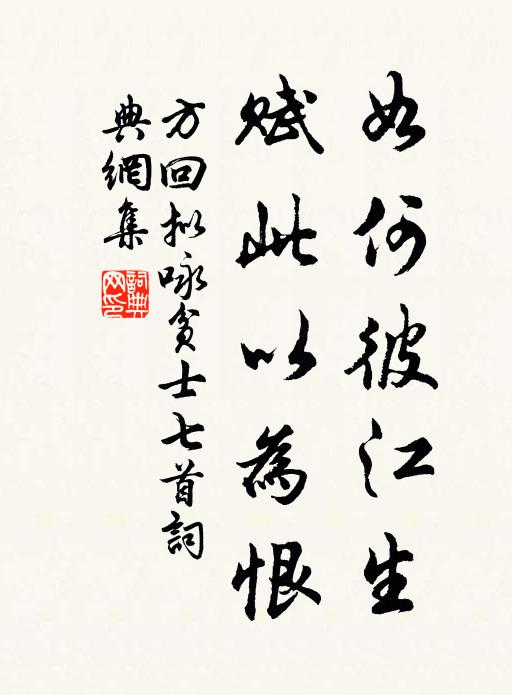 如何彼江生
賦此以為恨
方回拟咏貧士七首詞
典網集
詞典网印